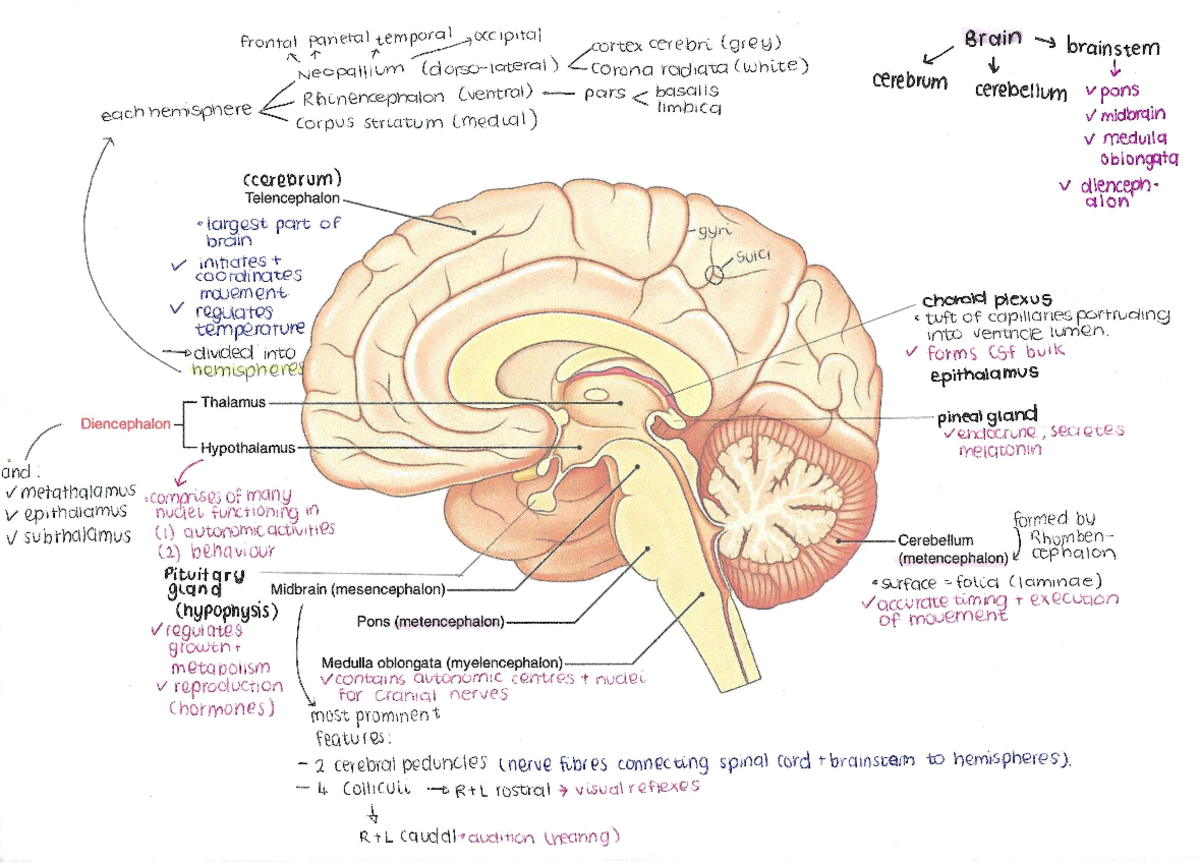 frontal parietal temporal occipital
Neopallium (dorso-lateral)
cortex cerebri (grey)
corona radiata (white)
each hemisphere
Rhinencephalon (ventral) — pars
basalis
limbica
corpus striatum (medial)
Brain → brainstem
cerebrum
cerebellum
✓ pons
✓ midbrain
✓ medulla
oblongata
✓ dienceph-
alon
(cerebrum)
Telencephalon
• largest part of
brain
✓ initiates +
coordinates
movement
✓ regulates
temperature
→ divided into
hemispheres
gyri
sulci
choroid plexus
• tuft of capillaries portruding
into ventricle lumen.
✓ forms CSF bulk
epithalamus
pineal gland
✓ endocrine, secretes
melatonin
Thalamus
Diencephalon
Hypothalamus
and:
✓ metathalamus
✓ epithalamus
✓ subthalamus
• comprises of many
nuclei functioning in
(1) autonomic activities
(2) behaviour
Pituitary
gland
(hypophysis)
✓ regulates
growth +
metabolism
✓ reproduction
(hormones)
Midbrain (mesencephalon)
Pons (metencephalon)
Medulla oblongata (myelencephalon)
✓ contains autonomic centres + nuclei
for cranial nerves
Cerebellum
(metencephalon)
formed by
Rhomben-
cephalon
• surface = folia (laminae)
✓ accurate timing + execution
of movement
most prominent
features:
- 2 cerebral peduncles (nerve fibres connecting spinal cord + brainstem to hemispheres).
- 4 colliculi → R+L rostral → visual reflexes
R+L caudal → audition (hearing)